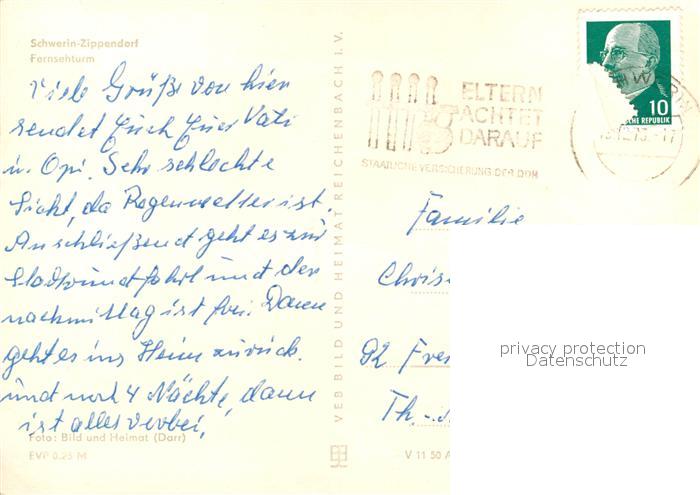 Schwerin-Zippendorf
Fernsehturm
Viele Grüße von hier
sendet Euch Euer Vati
u. Opi. Sehr schlechte
Sicht, da Regenwetter ist.
Anschließend geht es zur
Stadtrundfahrt und der
nachmittag ist frei. Dann
geht es ins Heim zurück.
und noch 4 Nächte, dann
ist alles vorbei.
Foto: Bild und Heimat (Darr)
EVP 0.25 M
VEB BILD UND HEIMAT REICHENBACH I. V.
V 11 50 A
ELTERN
ACHTET
DARAUF
STAATLICHE VERSICHERUNG DER DDR
10
SCHE REPUBLIK
Familie
Chris
Th.
privacy protection
Datenschutz